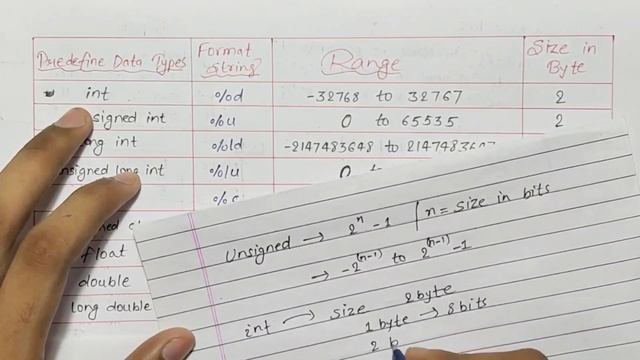 Predefine Data Types Format String Range Size in Byte
int %d -32768 to 32767 2
signed int %u 0 to 65535 2
int %ld -2147483648 to
int %lu 0
%c
float
double
long double
Unsigned → 2^n - 1 | n = size in bits
→ -2^(n-1) to 2^(n-1) - 1
int → size 2 byte
1 byte → 8 bits
2 b